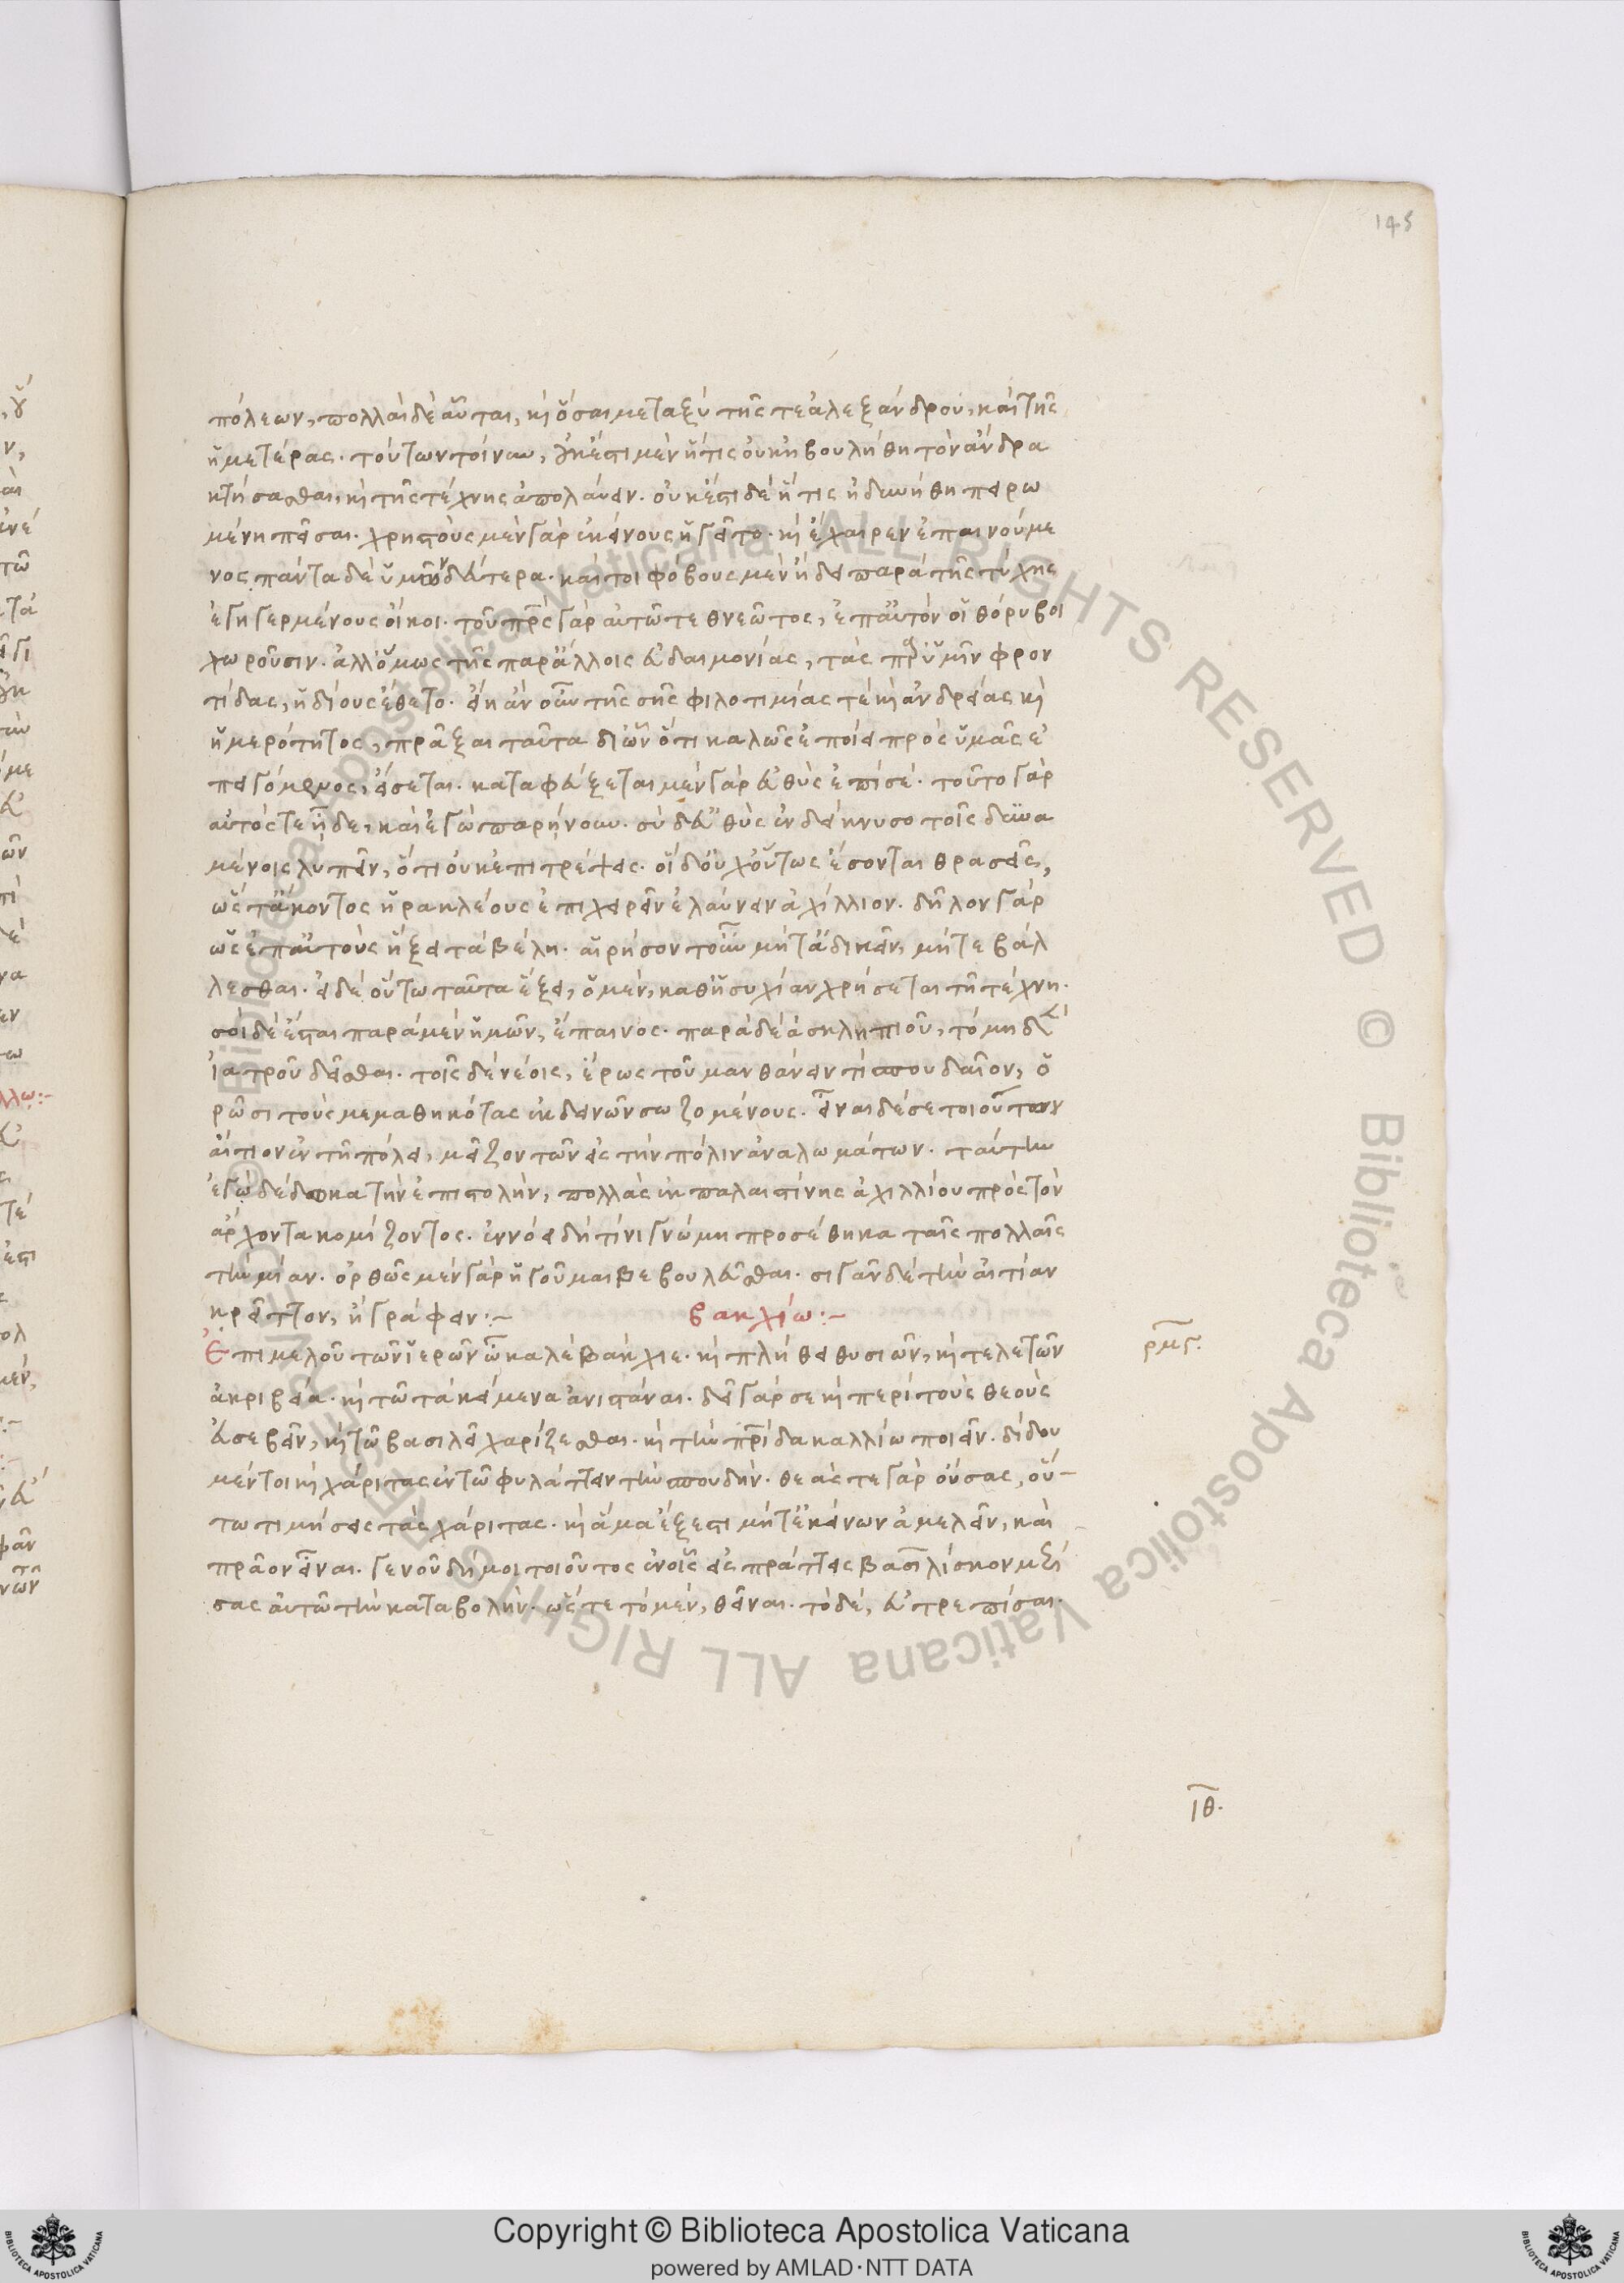 145
πόλεων, πολλαὶ δὲ αὗται, κὶ ὅσαι μεταξὺ τῆς τε ἀλεξάνδρου, καὶ τῆς
ἡμετέρας. τούτων τοίνυν, οὐκ ἔστι μὲν ἥτις οὐκ ἠβουλήθη τὸν ἄνδρα
κτήσασθαι, κὶ τῆς τέχνης ἀπολαύειν. οὐκ ἔστι δὲ ἥτις ἠδυνήθη πειρω
μένη πεῖσαι. χρηστοὺς μὲν γὰρ ἐκείνους ἡγεῖτο. κὶ ἔχαιρεν ἐπαινούμε
νος πάντα δὲ ὑμῶν δεύτερα. καίτοι φόβους μὲν ἤδει παρὰ τῆς τύχης
ἐγηγερμένους οἴκοι. τοῦ πρς γὰρ αὐτῶ τεθνεῶτος, ἐπ αὐτὸν οἱ θόρυβοι
χωροῦσιν. ἀλλ ὅμως τῆς παρ ἄλλοις εὐδαιμονίας, τὰς παρ ὑμῖν φρον
τίδας, ἡδίους ἔθετο. εἴη ἂν οὖν τῆς σῆς φιλοτιμίας τὲ κὶ ἀνδρείας κὶ
ἡμερότητος, πρᾶξαι ταῦτα δι ὧν ὅτι καλῶς ἐποίει πρὸς ὑμᾶς ἐ
πειγόμενος, εἴσεται. καταφεύξεται μὲν γὰρ εὐθὺς ἐπὶ σέ. τοῦτο γὰρ
αὐτός τε ᾔδει, καὶ ἐγὼ παρῄνουν. σὺ δ εὐθὺς ἐνδείκνυσο τοῖς δυνα
μένοις λυπεῖν, ὅτι οὐκ ἐπιτρέψεις. οἱ δ οὐχ οὕτως ἔσονται θρασεῖς,
ὥστ ἄκοντος ἡρακλέους ἐπιχειρεῖν ἐλαύνειν ἀχίλλιον. δῆλον γὰρ
ὡς ἐπ αὐτοὺς ἥξει τὰ βέλη. αἱρήσονται οὖν μήτ ἀδικεῖν, μήτε βάλ
λεσθαι. εἰ δὲ οὕτω ταῦτα ἕξει, ὁ μὲν, καθ ἡσυχίαν χρήσεται τῆ τέχνη.
σοὶ δὲ ἔσται παρὰ μὲν ἡμῶν, ἔπαινος. παρὰ δὲ ἀσκληπιοῦ, τὸ μηδὲ
ἰατροῦ δεῖσθαι. τοῖς δὲ νέοις, ἔρως τοῦ μανθάνειν τὶ σπουδαῖον, ὁ
ρῶσι τοὺς μεμαθηκότας ἐκ δεινῶν σωζομένους. εἶναι δέ σε τοιούτων
αἴτιον ἐν τῆ πόλει, μεῖζον τῶν εἰς τὴν πόλιν ἀναλωμάτων. ταύτην
ἐγὼ δέδωκα τὴν ἐπιστολὴν, πολλὰς ἐκ παλαιστίνης ἀχιλλίου πρὸς τὸν
ἄρχοντα κομίζοντος. ἐννόει δὴ τίνι γνώμη προσέθηκα ταῖς πολλαῖς
τὴν μίαν. ὀρθῶς μὲν γὰρ ἡγοῦμαι βεβουλεῦσθαι. σιγᾶν δὲ τὴν αἰτίαν
κρεῖττον, ἢ γράφειν:~ βακχίω:~
Ἐπιμελοῦ τῶν ἱερῶν ὦ καλὲ βάκχιε. κὶ πλήθει θυσιῶν, κὶ τελετῶν
ἀκριβεία. κὶ τῶ τὰ κείμενα ἀνιστάναι. δεῖ γάρ σε κὶ περὶ τοὺς θεοὺς
εὐσεβεῖν, κὶ τῶ βασιλεῖ χαρίζεσθαι. κὶ τὴν πρίδα καλλίω ποιεῖν. δίδου
μέντοι κὶ χάριτας ἐν τῶ φυλάττειν τὴν σπουδήν. θεάς τε γὰρ οὔσας, οὕ-
τω τιμήσεις τὰς χάριτας. κὶ ἅμα ἔξεστι μήτ ἐκείνων ἀμελεῖν, καὶ
πρᾶον εἶναι. γενοῦ δή μοι τοιοῦτος ἐν οἷς εἰσπράττεις βασιλίσκον μερί
σας αὐτῶ τὴν καταβολήν. ὥστε τὸ μὲν, θεῖναι. τὸ δὲ, εὐτρεπίσαι.
ρμς.
ιθ.
Copyright © Biblioteca Apostolica Vaticana
powered by AMLAD·NTT DATA